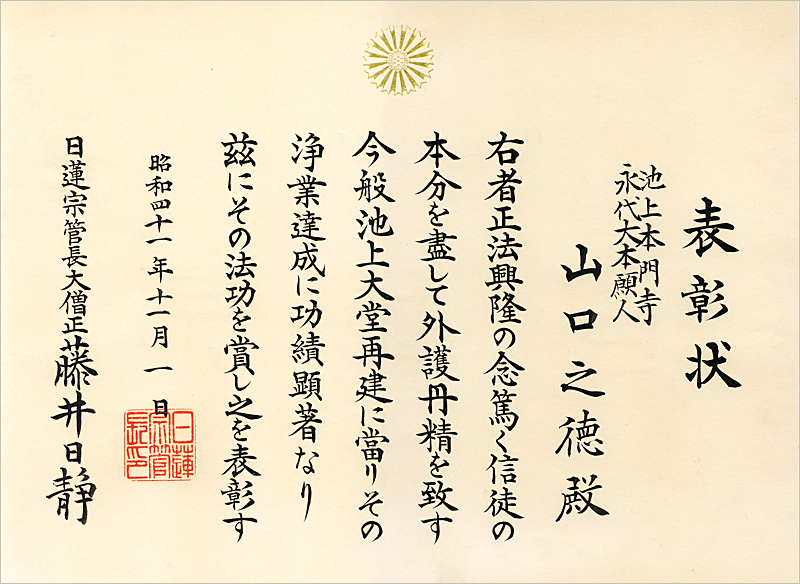 表彰状
池上本門寺
永代大本願人
山口之徳殿
右者正法興隆の念篤く信徒の
本分を盡して外護丹精を致す
今般池上大堂再建に當りその
浄業達成に功績顕著なり
茲にその法功を賞し之を表彰す
昭和四十一年十一月一日
日蓮宗管長大僧正藤井日静
日蓮
宗管
長印